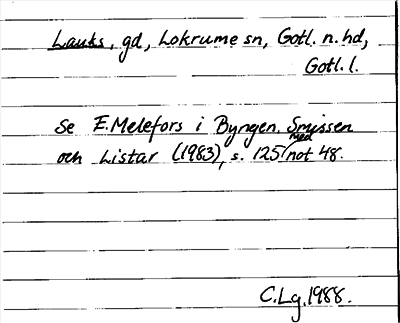 Lauks, gd, Lokrume sn, Gotl. n. hd,
Gotl. l.
Se E. Melefors i Byngen. Smissen
med
och Listar (1983), s. 125 not 48.
C.Lg. 1988.